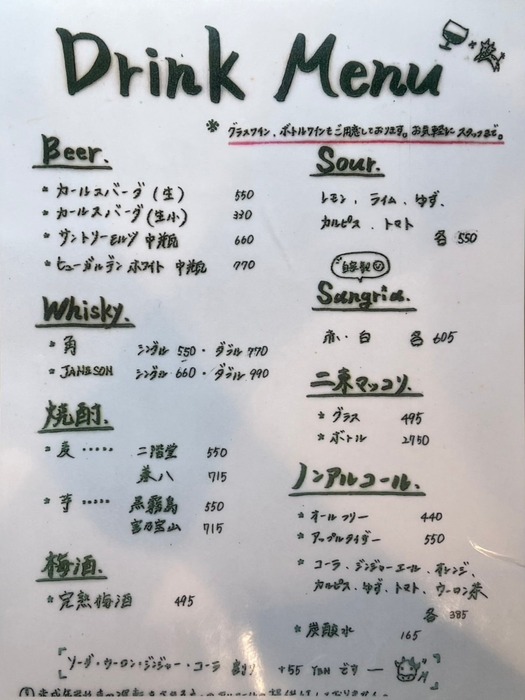 Drink Menu
* グラスワイン、ボトルワインもご用意しております。お気軽にスタッフまで。
Beer.
* カールスバーグ(生) 550
* カールスバーグ(生小) 330
* サントリーモルツ 中瓶 660
* ヒューガルデン ホワイト 中瓶 770
Whisky.
* 角 シングル 550・ダブル 770
* JAMESON シングル 660・ダブル 990
焼酎.
* 麦 ····· 二階堂 550
兼八 715
* 芋 ····· 黒霧島 550
富乃宝山 715
梅酒.
* 完熟梅酒 495
Sour.
レモン、ライム、ゆず、
カルピス、トマト
各 550
自家製
Sangria.
赤・白 各 605
二東マッコリ.
* グラス 495
* ボトル 2750
ノンアルコール.
* オールフリー 440
* アップルタイザー 550
* コーラ、ジンジャーエール、オレンジ、
カルピス、ゆず、トマト、ウーロン茶
各 385
* 炭酸水 165
「ソーダ・ウーロン・ジンジャー・コーラ 割り +55 YEN です